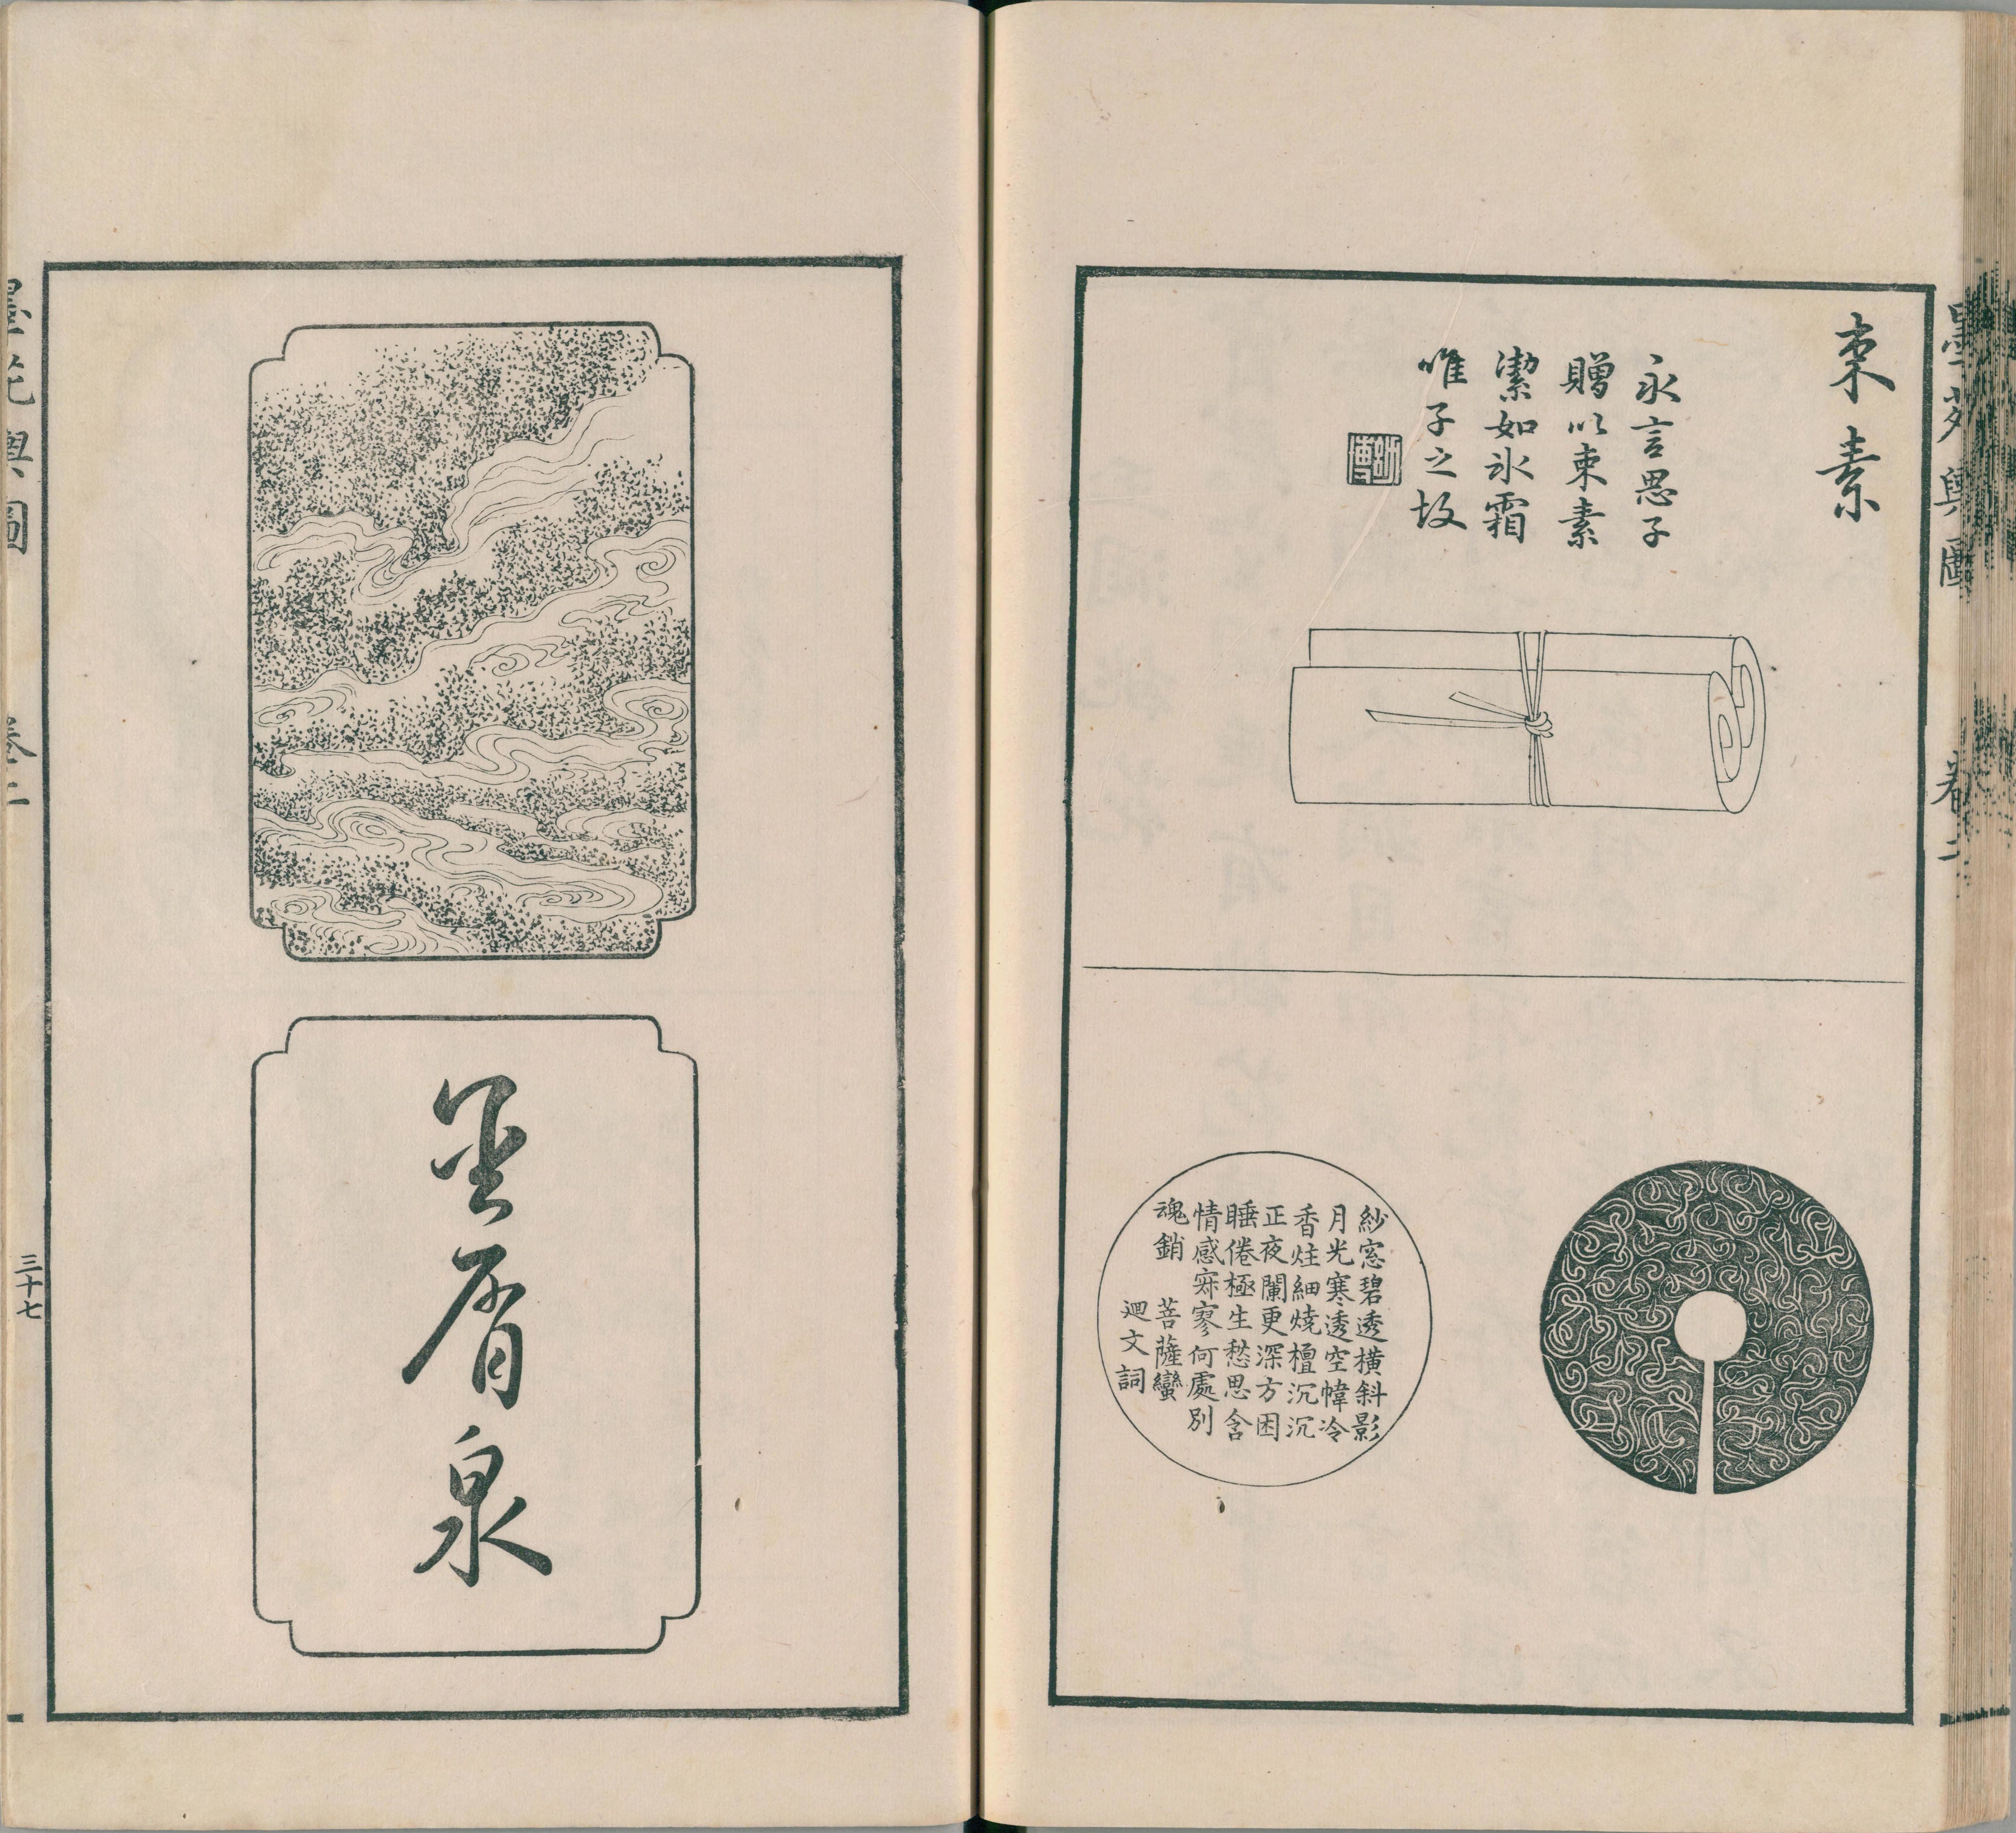 束素
永言思子
贈以束素
潔如氷霜
唯子之故
紗窓碧透橫斜影
月光寒透空幃冷
香炷細燒檀沉沉
正夜闌更深方困
睡倦極生愁思含
情感寂寥何處別
魂銷　菩薩蠻
迴文詞
卷二
金屑泉
輿圖
三十七